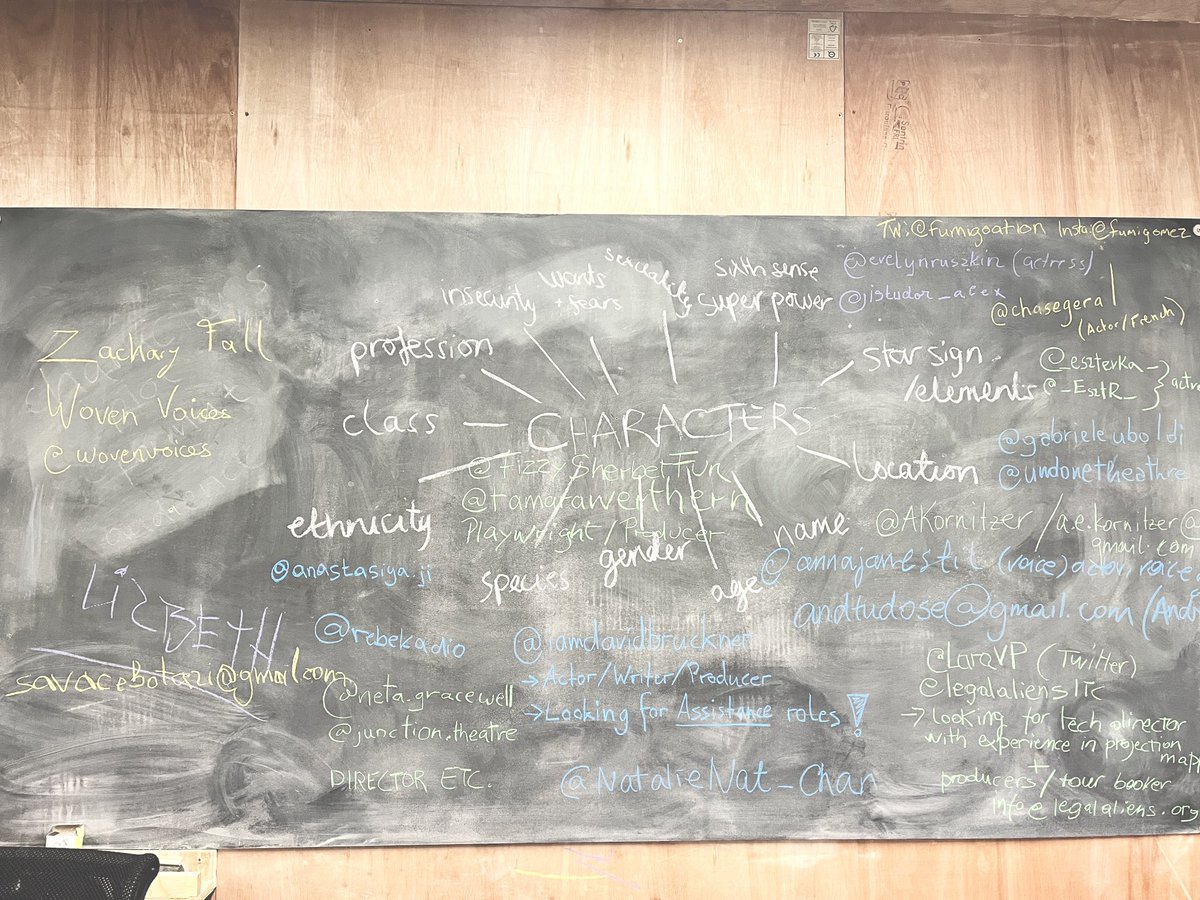 TW:@fumigoation Insta:@fumigomez
@evelynruszkin (actress)
@jistudor_alex
@chasegeral
(Actor/French)
sixth sense
super power
wants
+ fears
insecurity
profession
star sign
/elements
@_eszterka_
@_EsztR_
Zachary Fall
Woven Voices
@wovenvoices
class
CHARACTERS
@gabrieleuboldi
@undonetheathre
location
@FizzySherbetFun
@tamarawerthern
Playwright/Producer
ethnicity
gender
name
species
age
@AKornitzer / a.e.kornitzer@
gmail.com
@anastasiya.ji
@annajanestil (voice) actor
andtudose@gmail.com
LizBETH
@rebekadio
@iamdavidbruckner
→Actor/Writer/Producer
→Looking for Assistance roles!
@LaraVP (Twitter)
@legalaliensITC
→ looking for tech director
with experience in projection
+
producers/tour booker
info@legalaliens.org
@neta.gracewell
@junction.theatre
DIRECTOR ETC.
@NatalieNat_Chan